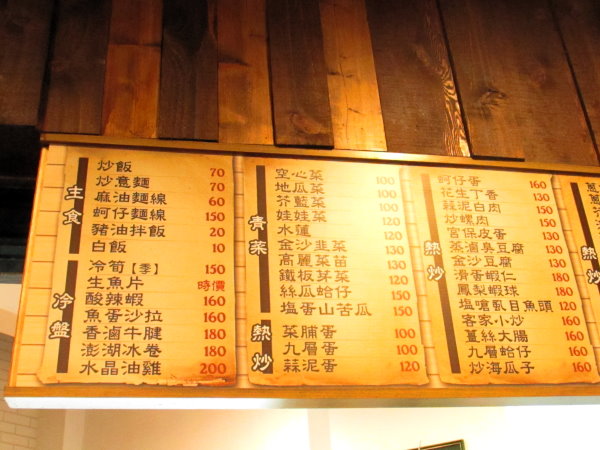 主食
炒飯 70
炒意麵 70
麻油麵線 60
蚵仔麵線 150
豬油拌飯 20
白飯 10
冷盤
冷筍【季】 150
生魚片 時價
酸辣蝦 160
魚蛋沙拉 160
香滷牛腱 180
澎湖冰卷 180
水晶油雞 200
青菜
空心菜 100
地瓜菜 100
芥藍菜 100
娃娃菜 120
水蓮 120
金沙韭菜 130
高麗菜苗 130
鐵板芽菜 120
絲瓜蛤仔 150
塩蛋山苦瓜 150
熱炒
菜脯蛋 100
九層蛋 100
蒜泥蛋 120
熱炒
蚵仔蛋 160
花生丁香 130
蒜泥白肉 150
炒螺肉 150
宮保皮蛋 130
蒸滷臭豆腐 130
金沙豆腐 130
滑蛋蝦仁 180
鳳梨蝦球 180
塩嗆虱目魚頭 120
客家小炒 160
薑絲大腸 160
九層蛤仔 160
炒海瓜子 160
熱炒
蔥
蔥